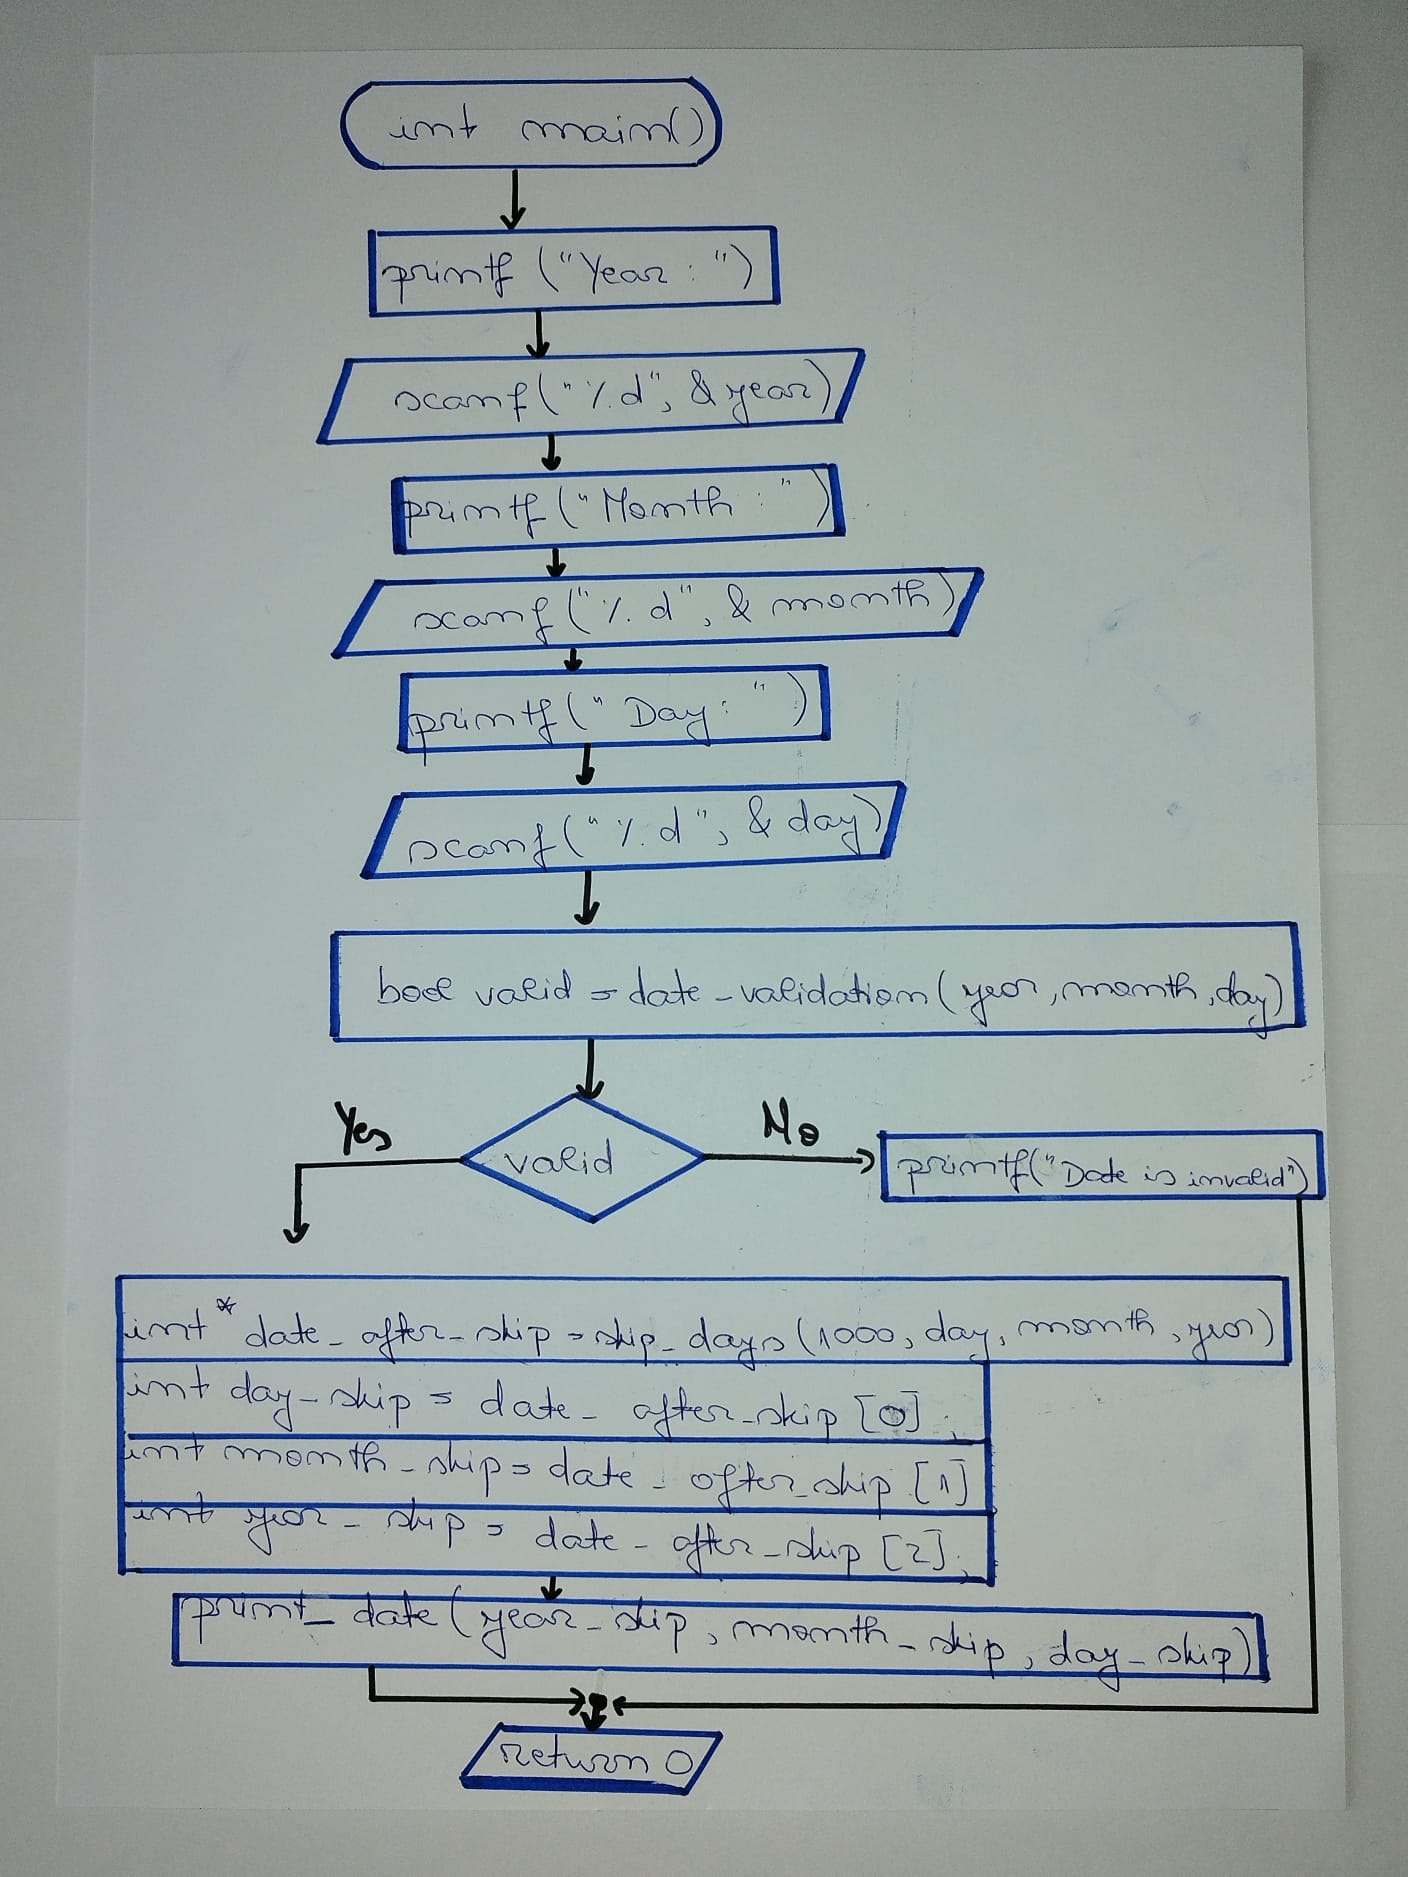 int main()
printf ("Year : ")
scanf("%d", &year)
printf("Month : ")
scanf("%d", &month)
printf("Day: ")
scanf("%d", &day)
bool valid = date_validation(year, month, day)
Yes
No
valid
printf("Date is invalid")
int* date_after_skip = skip_days (1000, day, month, year)
int day_skip = date_after_skip [0];
int month_skip = date_after_skip [1]
int year_skip = date_after_skip [2];
print_date (year_skip, month_skip, day_skip)
return 0